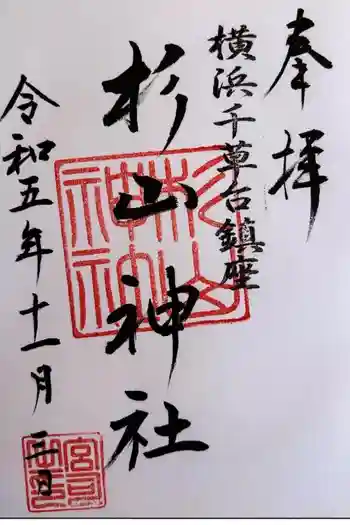 奉拝
横浜千草台鎮座
杉山神社
令和五年十一月三日
杉山神社